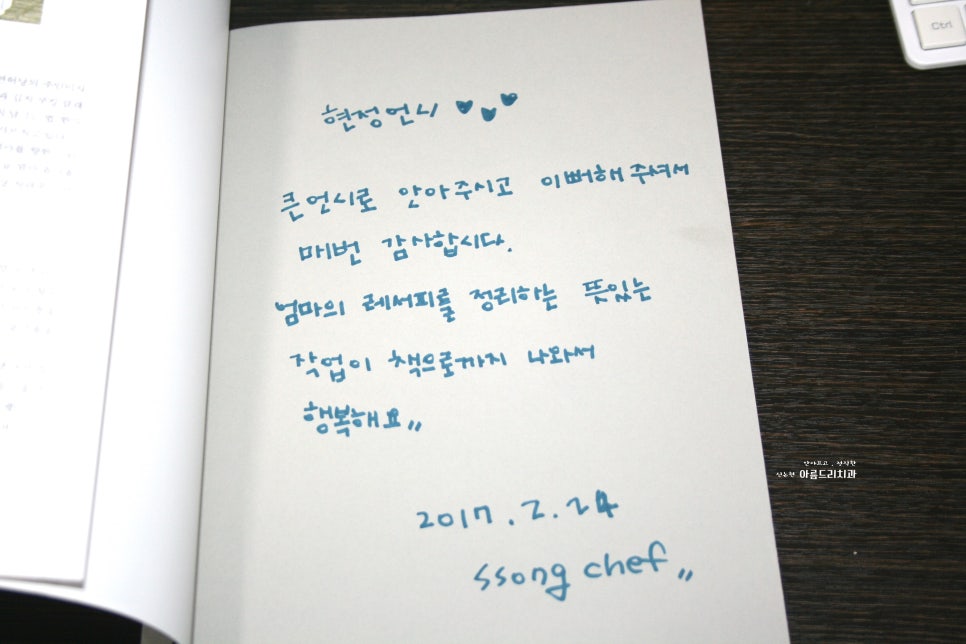 현정언니
큰언시로 안아주시고 이뻐해주셔서
매번 감사합시다.
엄마의 레서피를 정리하는 뜻있는
작업이 책으로까지 나와서
행복해요,,
2017. 2. 24
ssong chef,,
Ctrl
안아프고. 친절한
신논현 아름드리치과